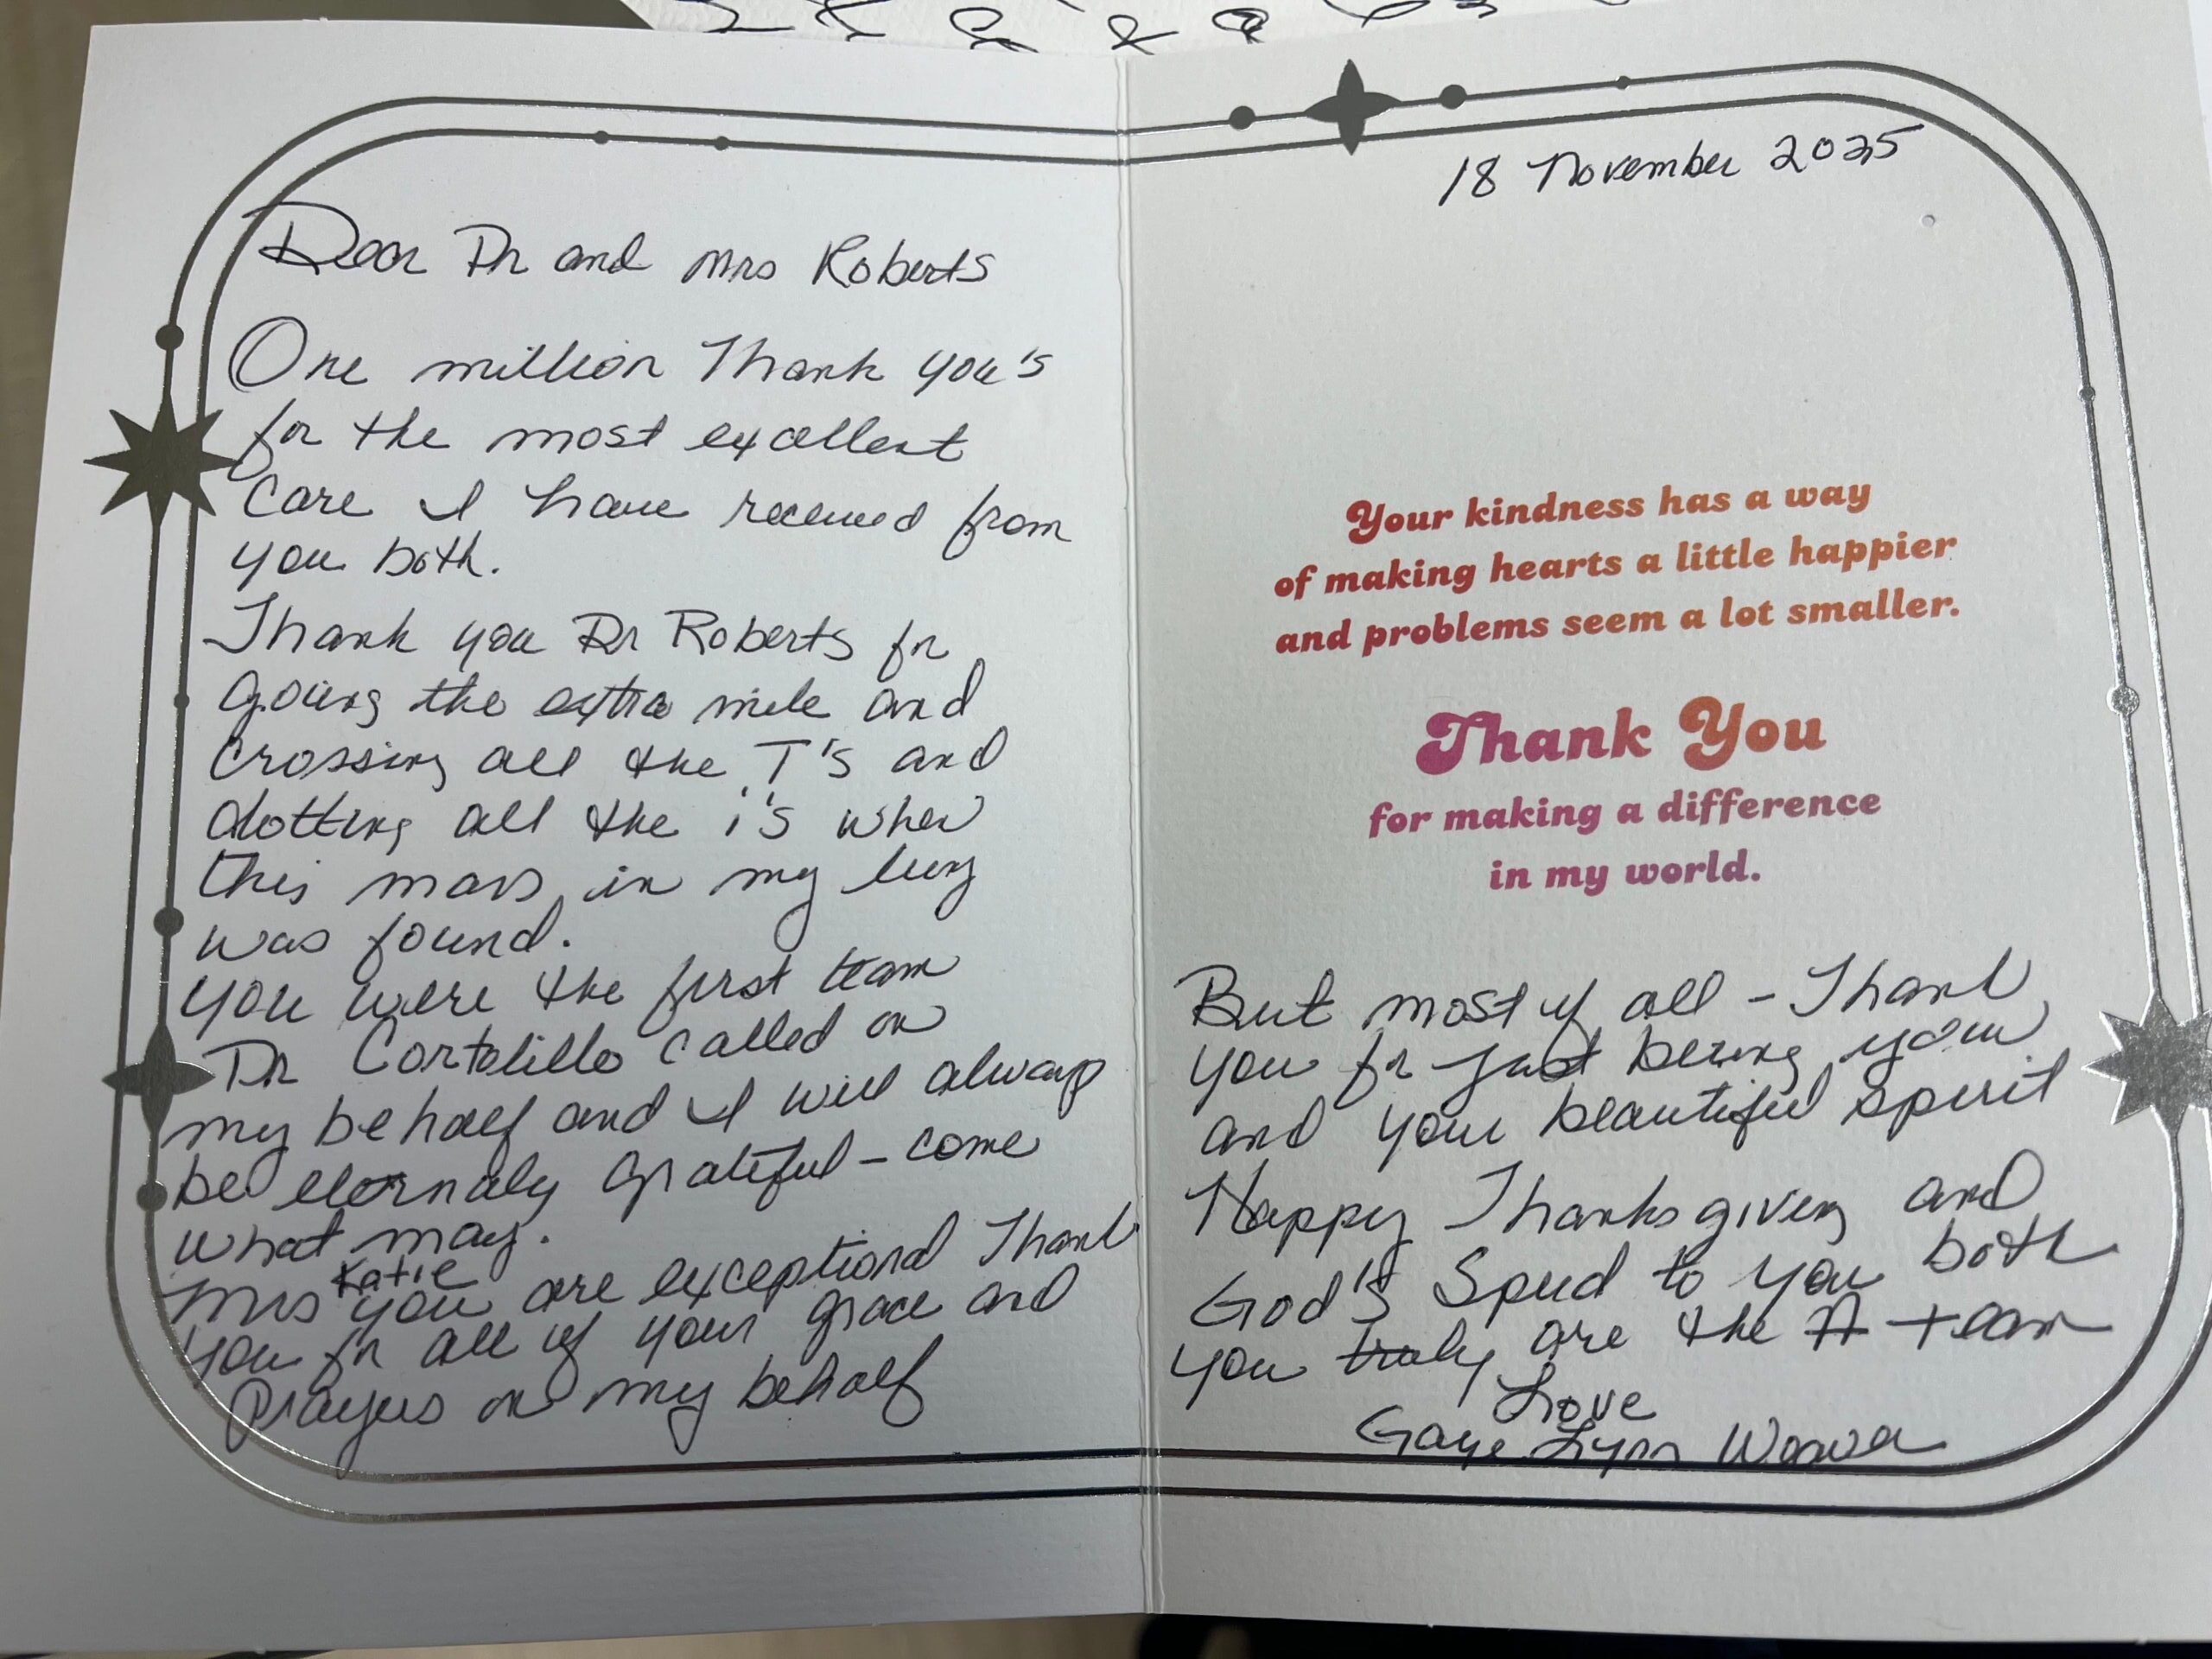 Dear Dr and Mrs Roberts
One million Thank you's
for the most excellent
Care I have received from
you both.
Thank you Dr Roberts for
going the extra mile and
crossing all the T's and
dotting all the i's when
this mass in my lung
was found.
you were the first team
Dr Cortolillo called on
my behalf and I will always
be eternaly grateful - come
what may.
Mrs Katie you are exceptional Thank
you for all of your grace and
prayers on my behalf
18 November 2025
Your kindness has a way
of making hearts a little happier
and problems seem a lot smaller.
Thank You
for making a difference
in my world.
But most of all - Thank
you for just being you
and your beautiful spirit
Happy Thanksgiving and
God's Speed to you both
you truly are the A team
Love
Gaye Lynn